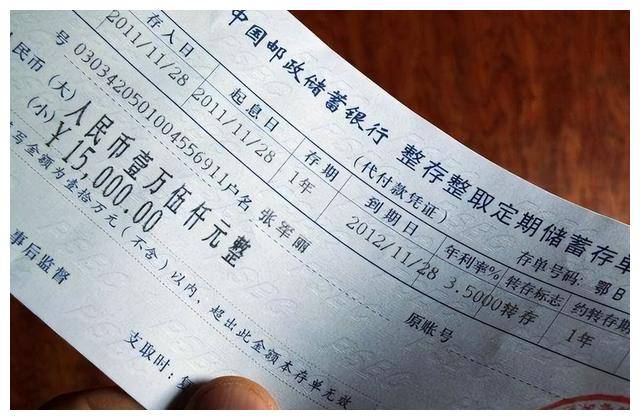 中国邮政储蓄银行 整存整取定期储蓄存单
(代付款凭证)
存单号码: 鄂B
号 03034205010045569​11户名: 张军丽
原账号
人民币(大) 人民币壹万伍仟元整
(小) ￥15,000.00
存入日 起息日 存期 到期日 年利率% 转存标志 约转存期
2011/11/28 2011/11/28 1年 2012/11/28 3.5000 转存 1年
写金额为壹拾万元(不含)以内,超出此金额本存单无效
事后监督
支取时: